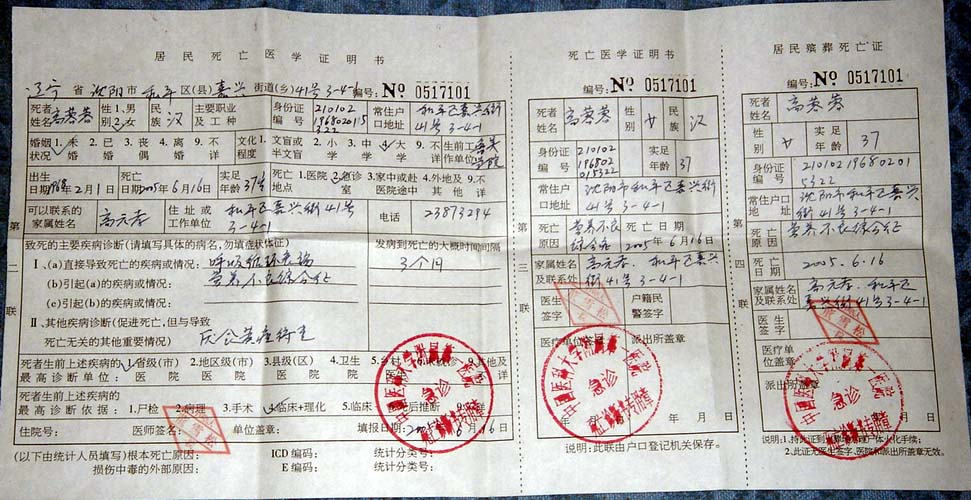 居民死亡医学证明书
辽宁省沈阳市和平区(县)嘉兴街道(乡)41号3-4-1 编号:№ 0517101
死者姓名 高蓉蓉 性别 1,男 2,女 民族 汉 主要职业及工种 身份证编号 210102196802015322 常住户口地址 和平区嘉兴街41号3-4-1
婚姻状况 1,未婚 2.已婚 3.丧偶 4.离婚 9.不详 文化程度 1.文盲或半文盲 2.小学 3.中学 4.大学 9.不详 生前工作单位
出生日期 1968年2月1日 死亡日期 2005年6月16日 实足年龄 37岁 死亡地点 1.医院 2.急诊 3.家中或赴医院途中 4.外地及其他 9.不详
可以联系的家属姓名 高元孝 住址或工作单位 和平区嘉兴街41号3-4-1 电话 23873294
致死的主要疾病诊断(请填写具体的病名,勿填症状体征) 发病到死亡的大概时间间隔
Ⅰ、(a)直接导致死亡的疾病或情况: 呼吸循环衰竭 3个月
(b)引起(a)的疾病或情况: 营养不良综合征
(c)引起(b)的疾病或情况:
Ⅱ、其他疾病诊断(促进死亡,但与导致死亡无关的其他重要情况)
死者生前上述疾病的最高诊断单位: 1.省级(市)医院 2.地区级(市)医院 3.县级(区)医院 4.卫生院 5.乡村 9.其他及不详
死者生前上述疾病的最高诊断依据: 1.尸检 2.病理 3.手术 4.临床+理化 5.临床 死后推断 9.不详
住院号: 医师签名: 单位盖章: 填报日期: 2005年6月16日
(以下由统计人员填写)根本死亡原因: ICD编码: 统计分类号:
损伤中毒的外部原因: E编码: 统计分类号:
第二联
死亡医学证明书
编号:№ 0517101
死者姓名 高蓉蓉 性别 女 民族 汉
身份证编号 210102196802015322 实足年龄 37
常住户口地址 沈阳市和平区嘉兴街41号3-4-1
死亡原因 营养不良综合症 死亡日期 2005年6月16日
家属姓名及联系处 高元孝.和平区嘉兴街41号3-4-1
医生签字 户籍民警签字
医疗单位盖章 派出所盖章
年 月 日 年 月 日
说明:此联由户口登记机关保存。
第三联
居民殡葬死亡证
编号:№ 0517101
死者姓名 高蓉蓉
性别 女 实足年龄 37
身份证编号 210102196802015322
常住户口地址 沈阳市和平区嘉兴街41号3-4-1
死亡原因 营养不良综合征
死亡日期 2005.6.16
家属姓名及联系处 高元孝.和平区嘉兴街41号3-4-1
医生签字
医疗单位盖章
派出所盖章
说明:1.持此证到 火化手续;
2.此证无医生签字、医院和派出所盖章无效。
第四联
中国医科大学附属第一医院
急诊